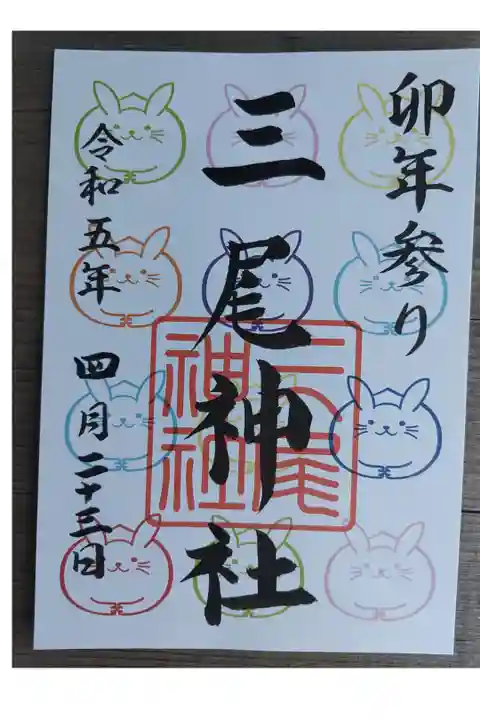 卯年参り
三尾神社
三尾神社
令和五年
四月二十三日